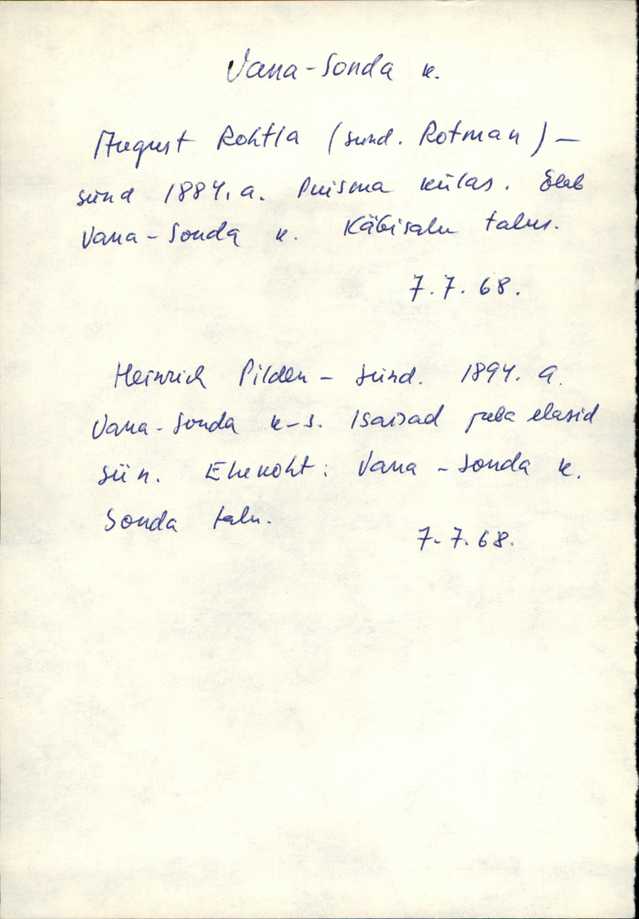 Vana-Sonda k.
August Rohtla (sünd. Rotman) –
sünd 1884. a. külas. Elab
Vana-Sonda k. Käbisalu talus.
7.7.68.
Heinrich Pilden – sünd. 1894. a.
Vana-Sonda k-s. Isaisad juba elasid
siin. Elukoht: Vana-Sonda k.
Sonda talu.
7.7.68.